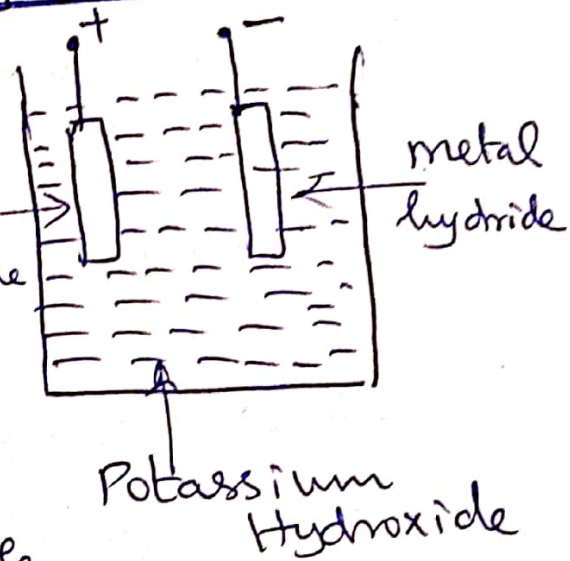 +
-
metal
hydride
Potassium
Hydroxide